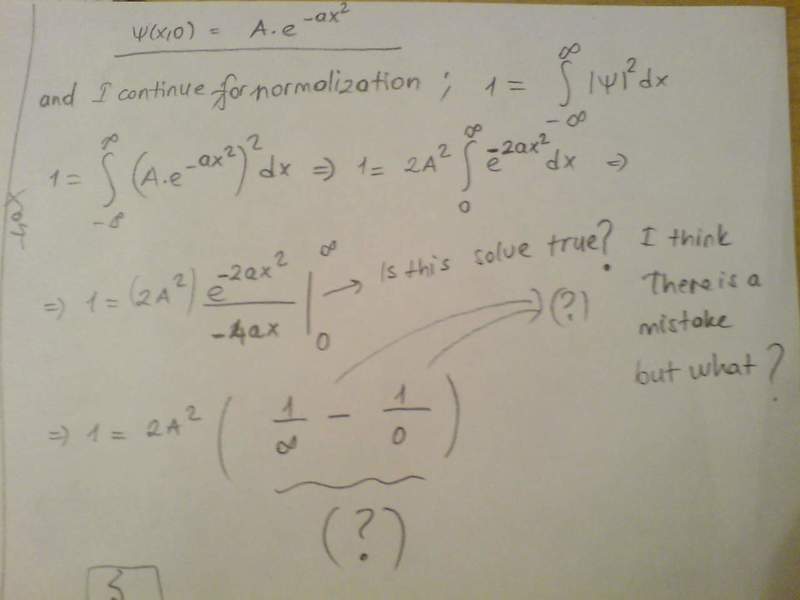 Ψ(x,0) = A.e^-ax²
and I continue for normolization ; 1 = ∫_-∞^∞ |Ψ|² dx
1 = ∫_-∞^∞ (A.e^-ax²)² dx ⇒ 1 = 2A² ∫_0^∞ e^-2ax² dx ⇒
⇒ 1 = (2A²) e^-2ax² / -4ax |_0^∞ → Is this solve true? I think
There is a
(?)
mistake
but what?
⇒ 1 = 2A² ( 1/∞ - 1/0 )
(?)